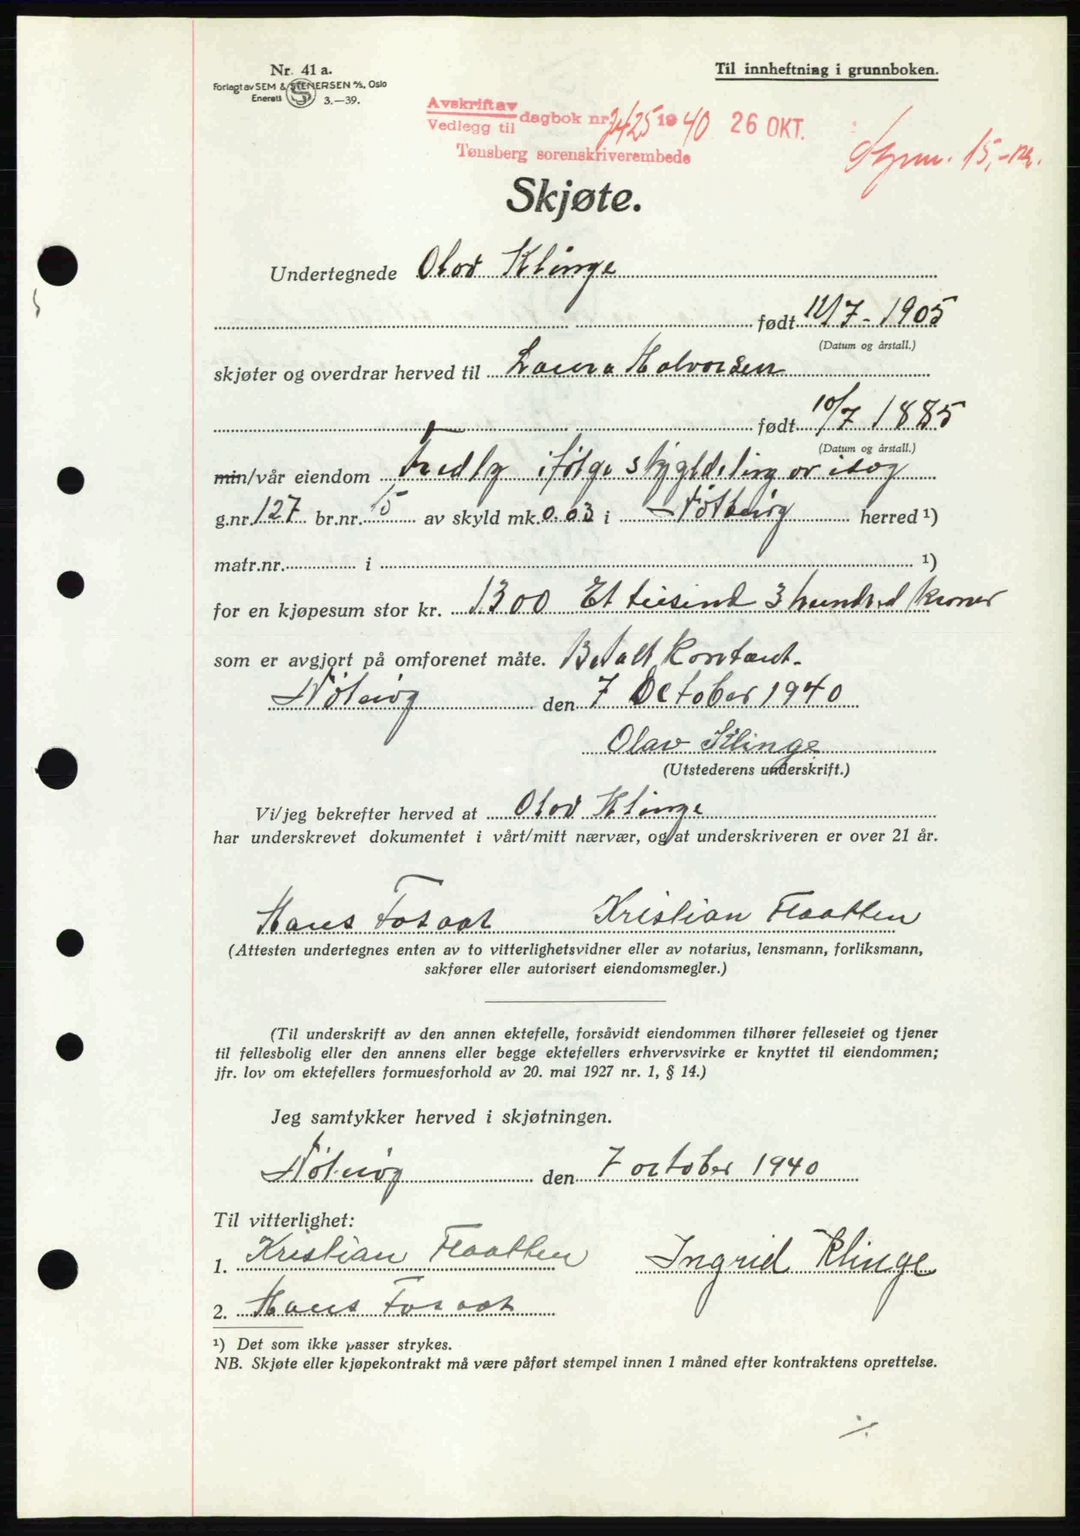 Nr. 41 a.
Forlagt av SEM & STENERSEN A/S, Oslo
Enerett S 3.—39.
Til innheftning i grunnboken.
Avskrift av
Vedlegg til
dagbok nr. 2425 1940 26 OKT.
Tønsberg sorenskriverembede
15,- kr.
Skjøte.
Undertegnede Olav Klinge
født 12/7 - 1905
(Datum og årstall.)
skjøter og overdrar herved til Laura Halvorsen
født 10/7 1885
(Datum og årstall.)
min/vår eiendom Fredly ifølge skyldeling av idag
g.nr. 127 br.nr. 15 av skyld mk. 0.03 i Nøtterøy herred ¹)
matr.nr. i ¹)
for en kjøpesum stor kr. 1300 Et tusind 3 hundred kroner
som er avgjort på omforenet måte. Betalt kontant.
Nøtterøy den 7 October 1940
Olav Klinge
(Utstederens underskrift.)
Vi/jeg bekrefter herved at Olav Klinge
har underskrevet dokumentet i vårt/mitt nærvær, og at underskriveren er over 21 år.
Hans Kristian Flaatten
(Attesten undertegnes enten av to vitterlighetsvidner eller av notarius, lensmann, forliksmann,
sakfører eller autorisert eiendomsmegler.)
(Til underskrift av den annen ektefelle, forsåvidt eiendommen tilhører felleseiet og tjener
til fellesbolig eller den annens eller begge ektefellers erhvervsvirke er knyttet til eiendommen;
jfr. lov om ektefellers formuesforhold av 20. mai 1927 nr. 1, § 14.)
Jeg samtykker herved i skjøtningen.
Nøtterøy den 7 october 1940
Til vitterlighet:
1. Kristian Flaatten Ingrid Klinge
2. Hans
¹) Det som ikke passer strykes.
NB. Skjøte eller kjøpekontrakt må være påført stempel innen 1 måned efter kontraktens oprettelse.